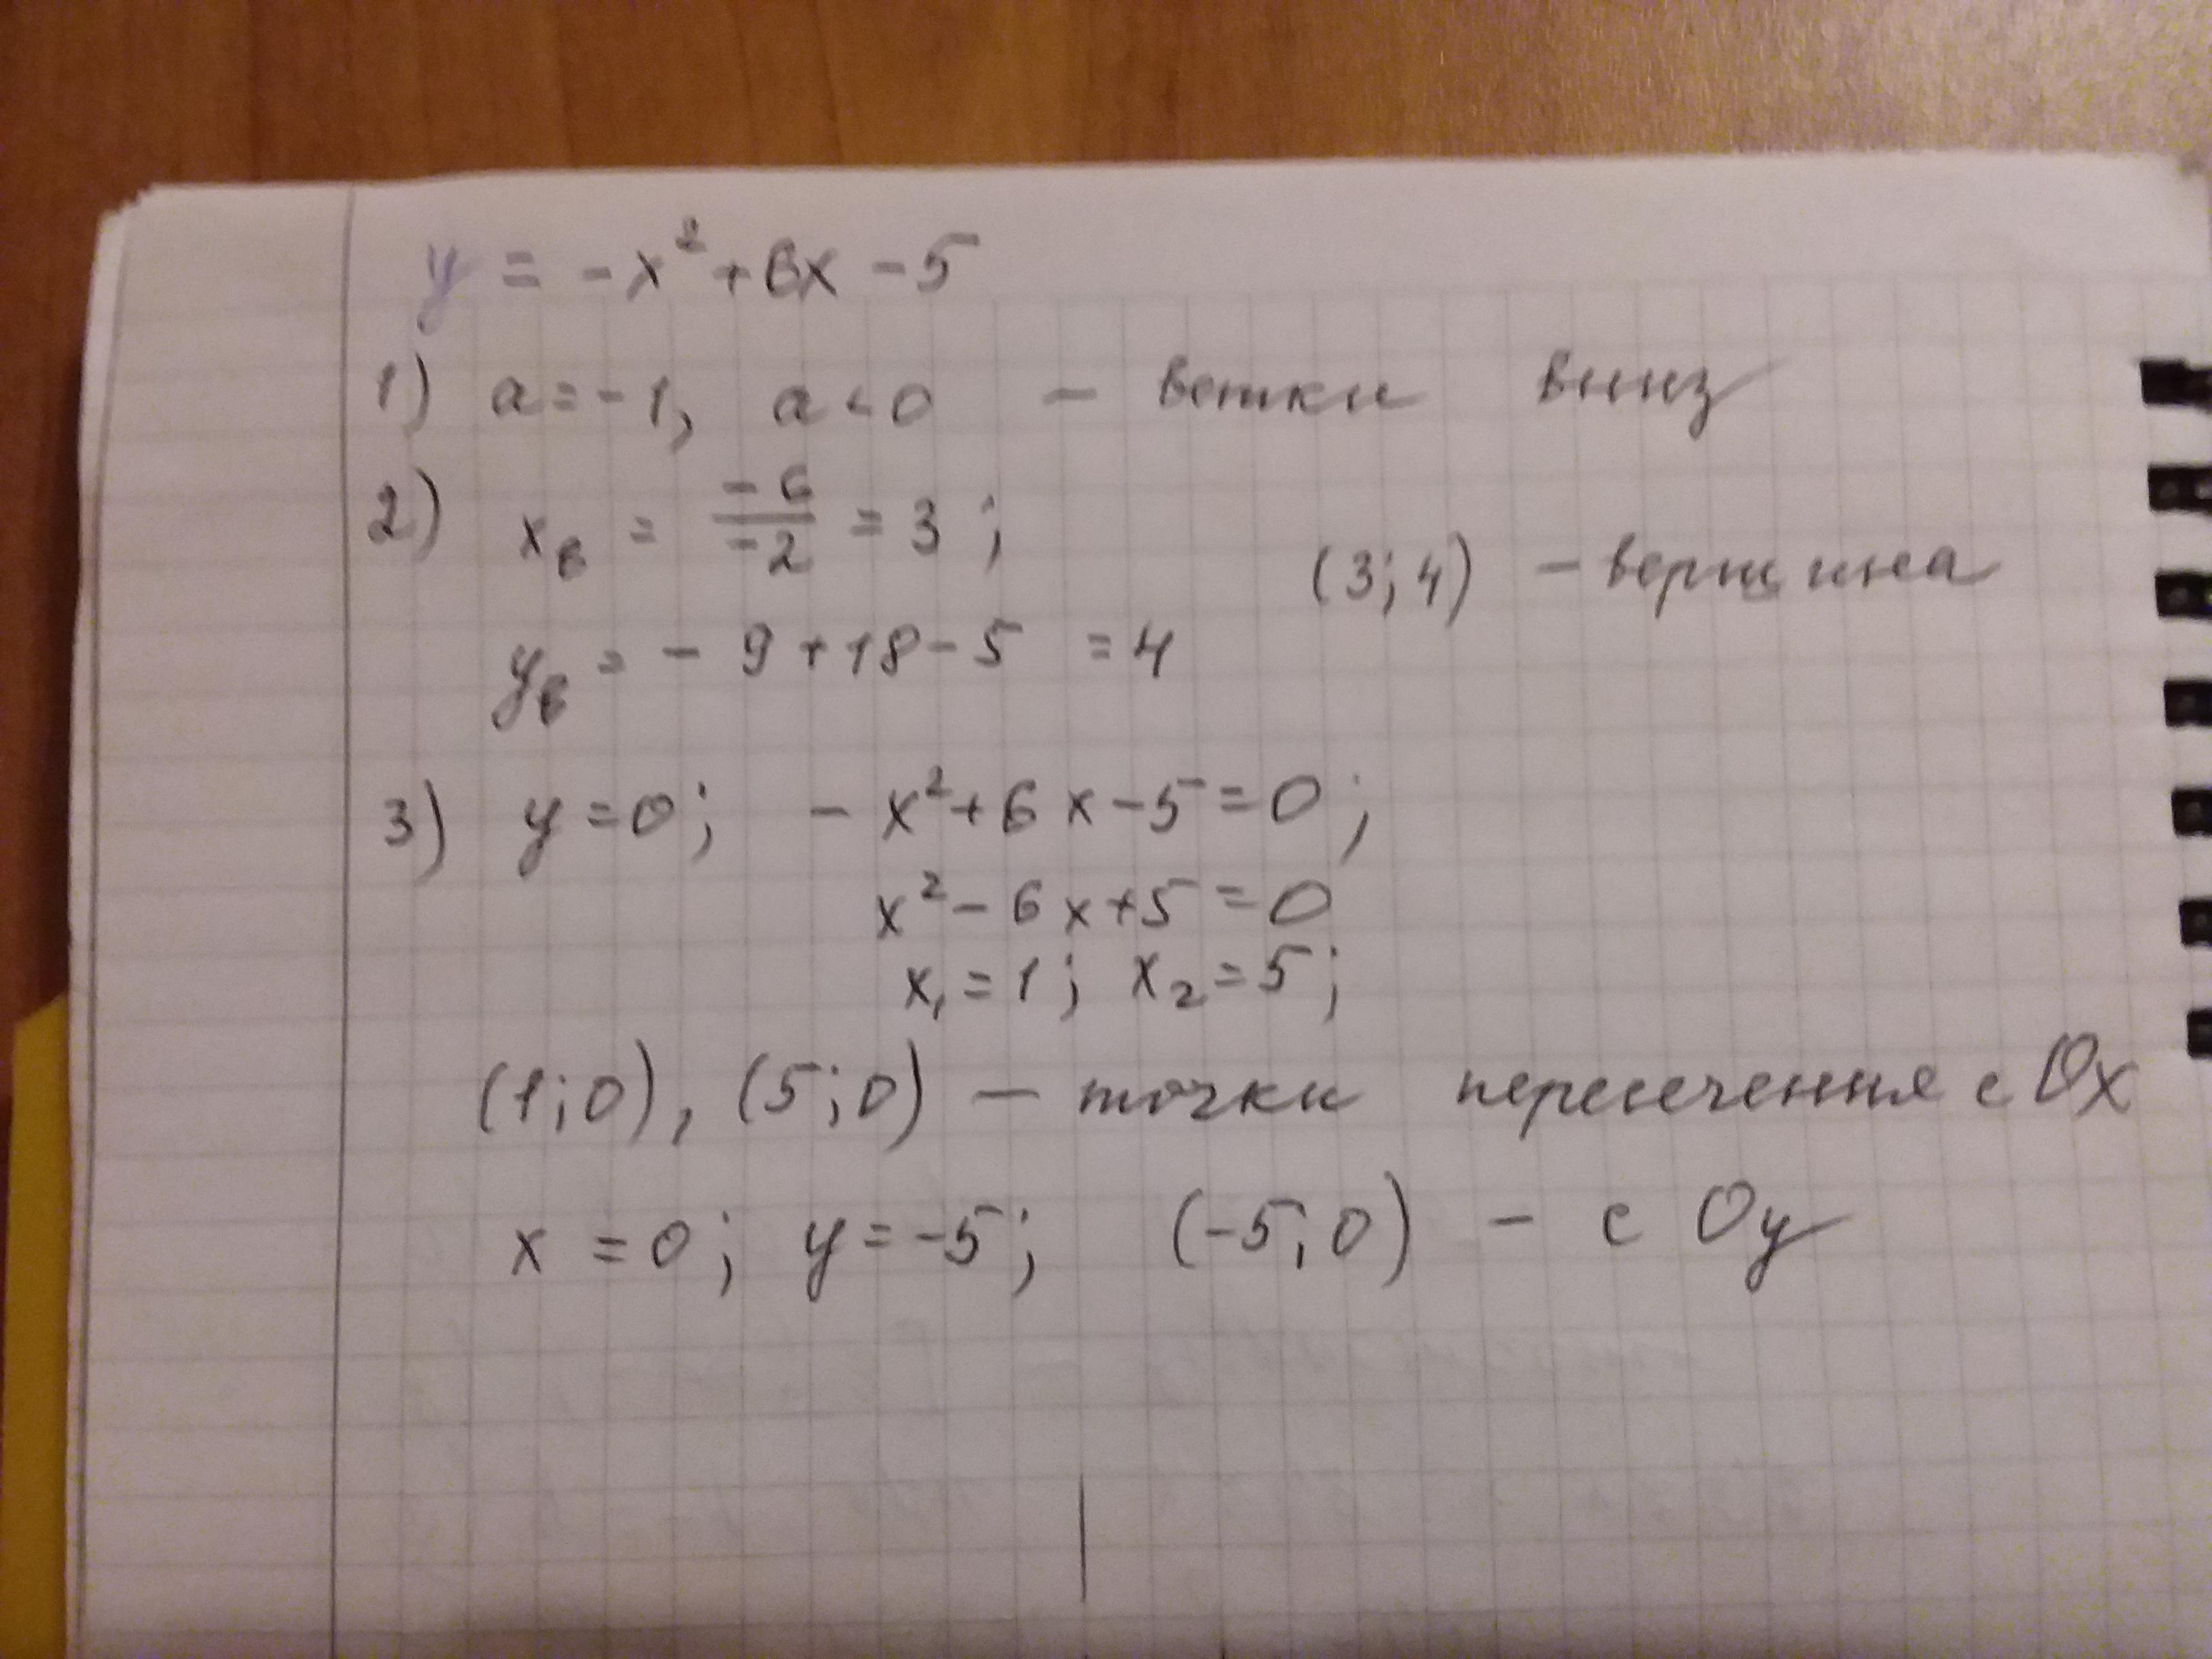 y = -x² + 6x - 5
1) a = -1, a < 0 - ветки вниз
2) xв = -6/-2 = 3;
(3; 4) - вершина
yв = - 9 + 18 - 5 = 4
3) y = 0; - x² + 6x - 5 = 0;
x² - 6x + 5 = 0
x₁ = 1; x₂ = 5;
(1; 0), (5; 0) - точки пересечения с Ox
x = 0; y = -5; (-5; 0) - с Oy